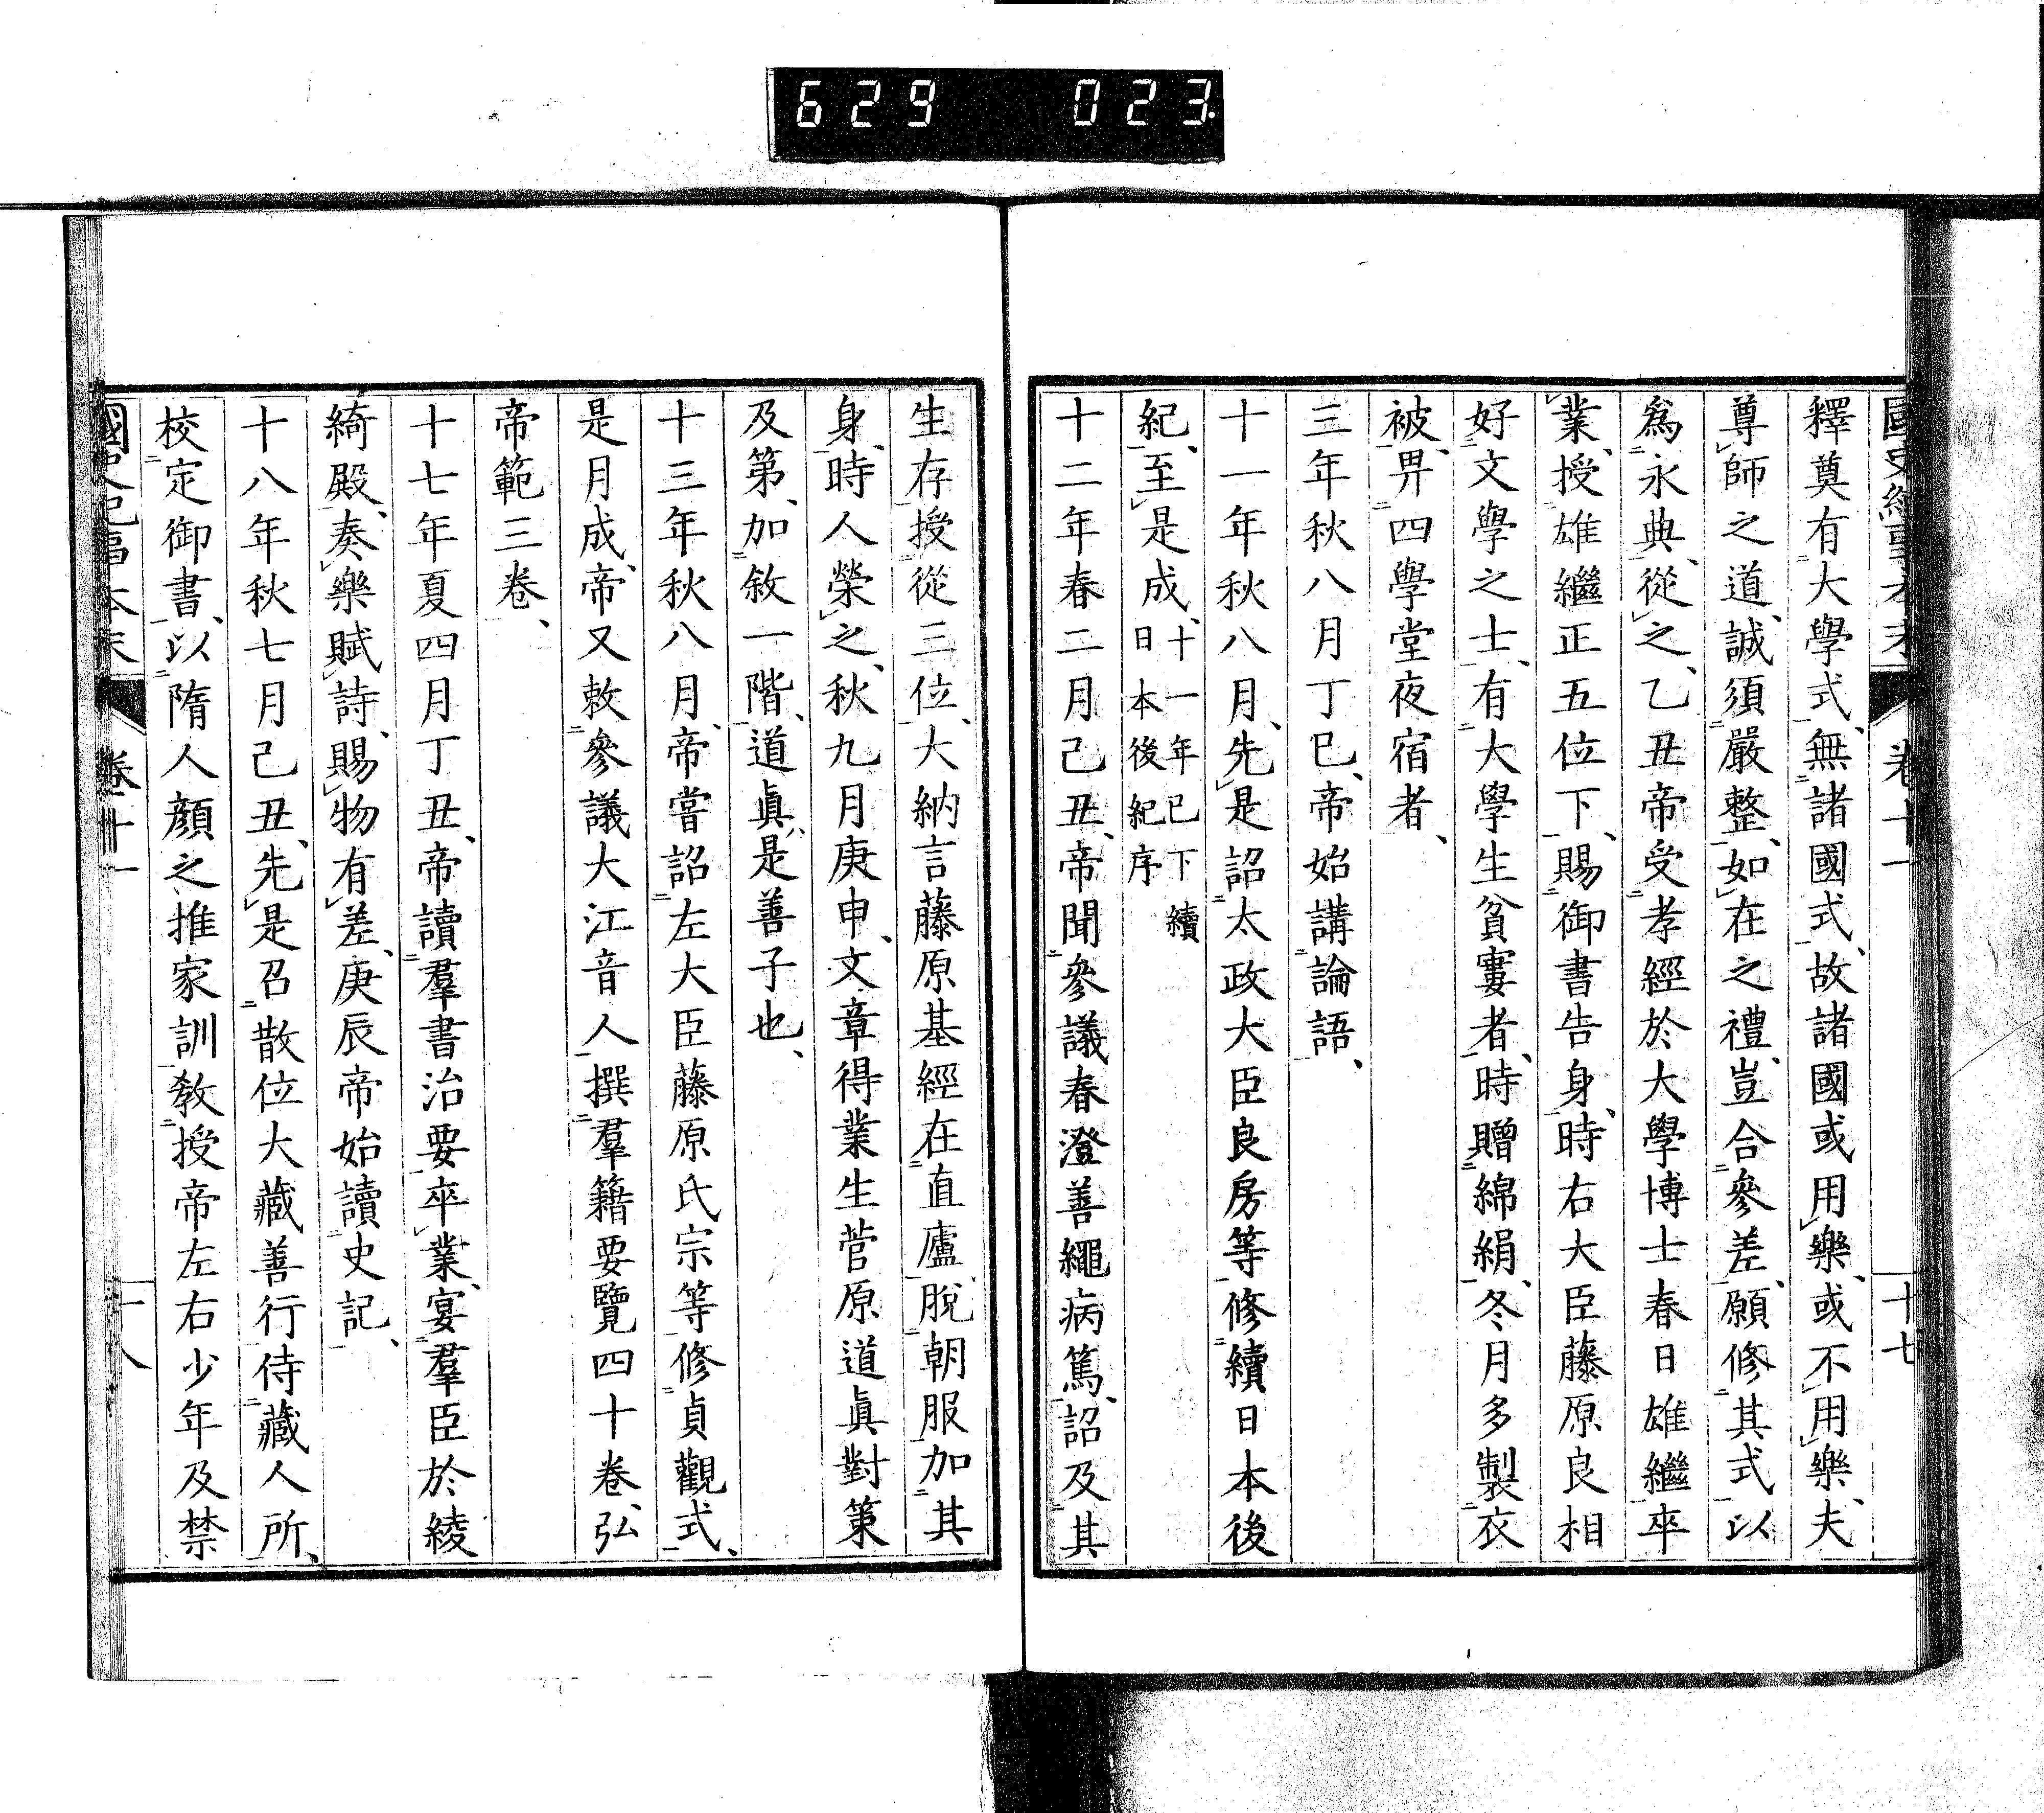 629 023
國史紀事本末 卷十一 十七
釋奠有大學式、無諸國式、故諸國或用樂、或不用樂、夫
尊師之道、誠須嚴整、如在之禮、豈合參差、願修其式以
爲永典、從之、乙丑帝受孝經於大學博士春日雄繼卒
業、授雄繼正五位下、賜御書告身、時右大臣藤原良相
好文學之士、有大學生貧寠者、時贈綿絹、冬月多製衣
被、畀四學堂夜宿者、
三年秋八月丁巳、帝始講論語、
十一年秋八月、先是詔太政大臣良房等修續日本後
紀、至是成、十一年已下續日本後紀序
十二年春二月己丑、帝聞參議春澄善繩病篤、詔及其
生存授從三位、大納言藤原基經在直廬脫朝服加其
身、時人榮之、秋九月庚申、文章得業生菅原道眞對策
及第、加敘一階、道眞、是善子也、
十三年秋八月、帝嘗詔左大臣藤原氏宗等修貞觀式、
是月成、帝又敕參議大江音人撰羣籍要覽四十卷、弘
帝範三卷、
十七年夏四月丁丑、帝讀羣書治要卒業、宴羣臣於綾
綺殿、奏樂賦詩、賜物有差、庚辰帝始讀史記、
十八年秋七月己丑、先是召散位大藏善行侍藏人所、
校定御書、以隋人顏之推家訓教授帝左右少年及禁
國史紀事本末 卷十一 十八